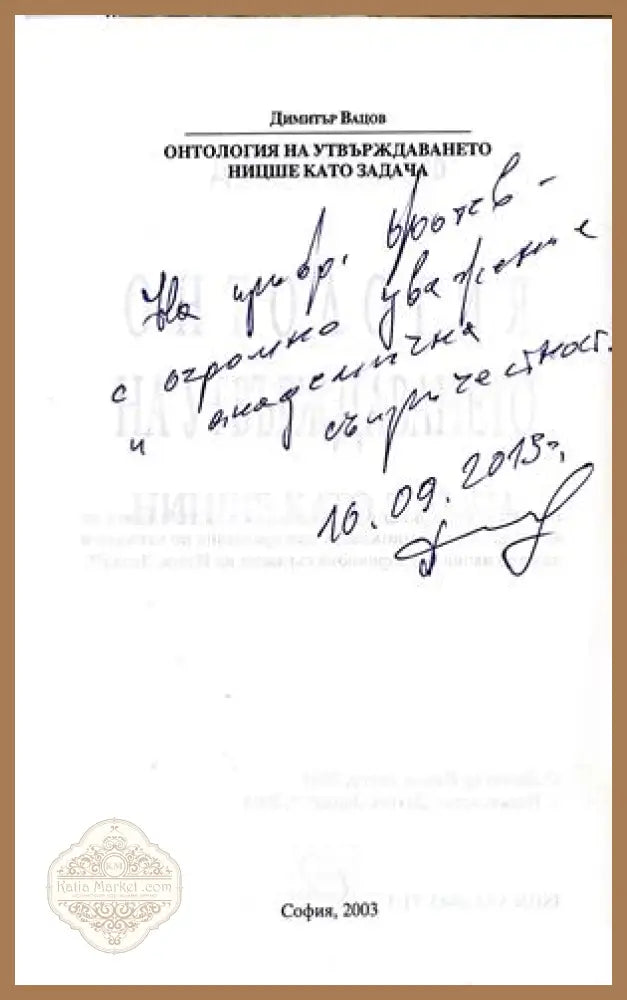 Димитър Вацов
ОНТОЛОГИЯ НА УТВЪРЖДАВАНЕТО
НИЦШЕ КАТО ЗАДАЧА
На проф. –
с огромно уважение
и академична
съпричастност.
16.09.2013 г.
КМ
Katia Market .com
София, 2003